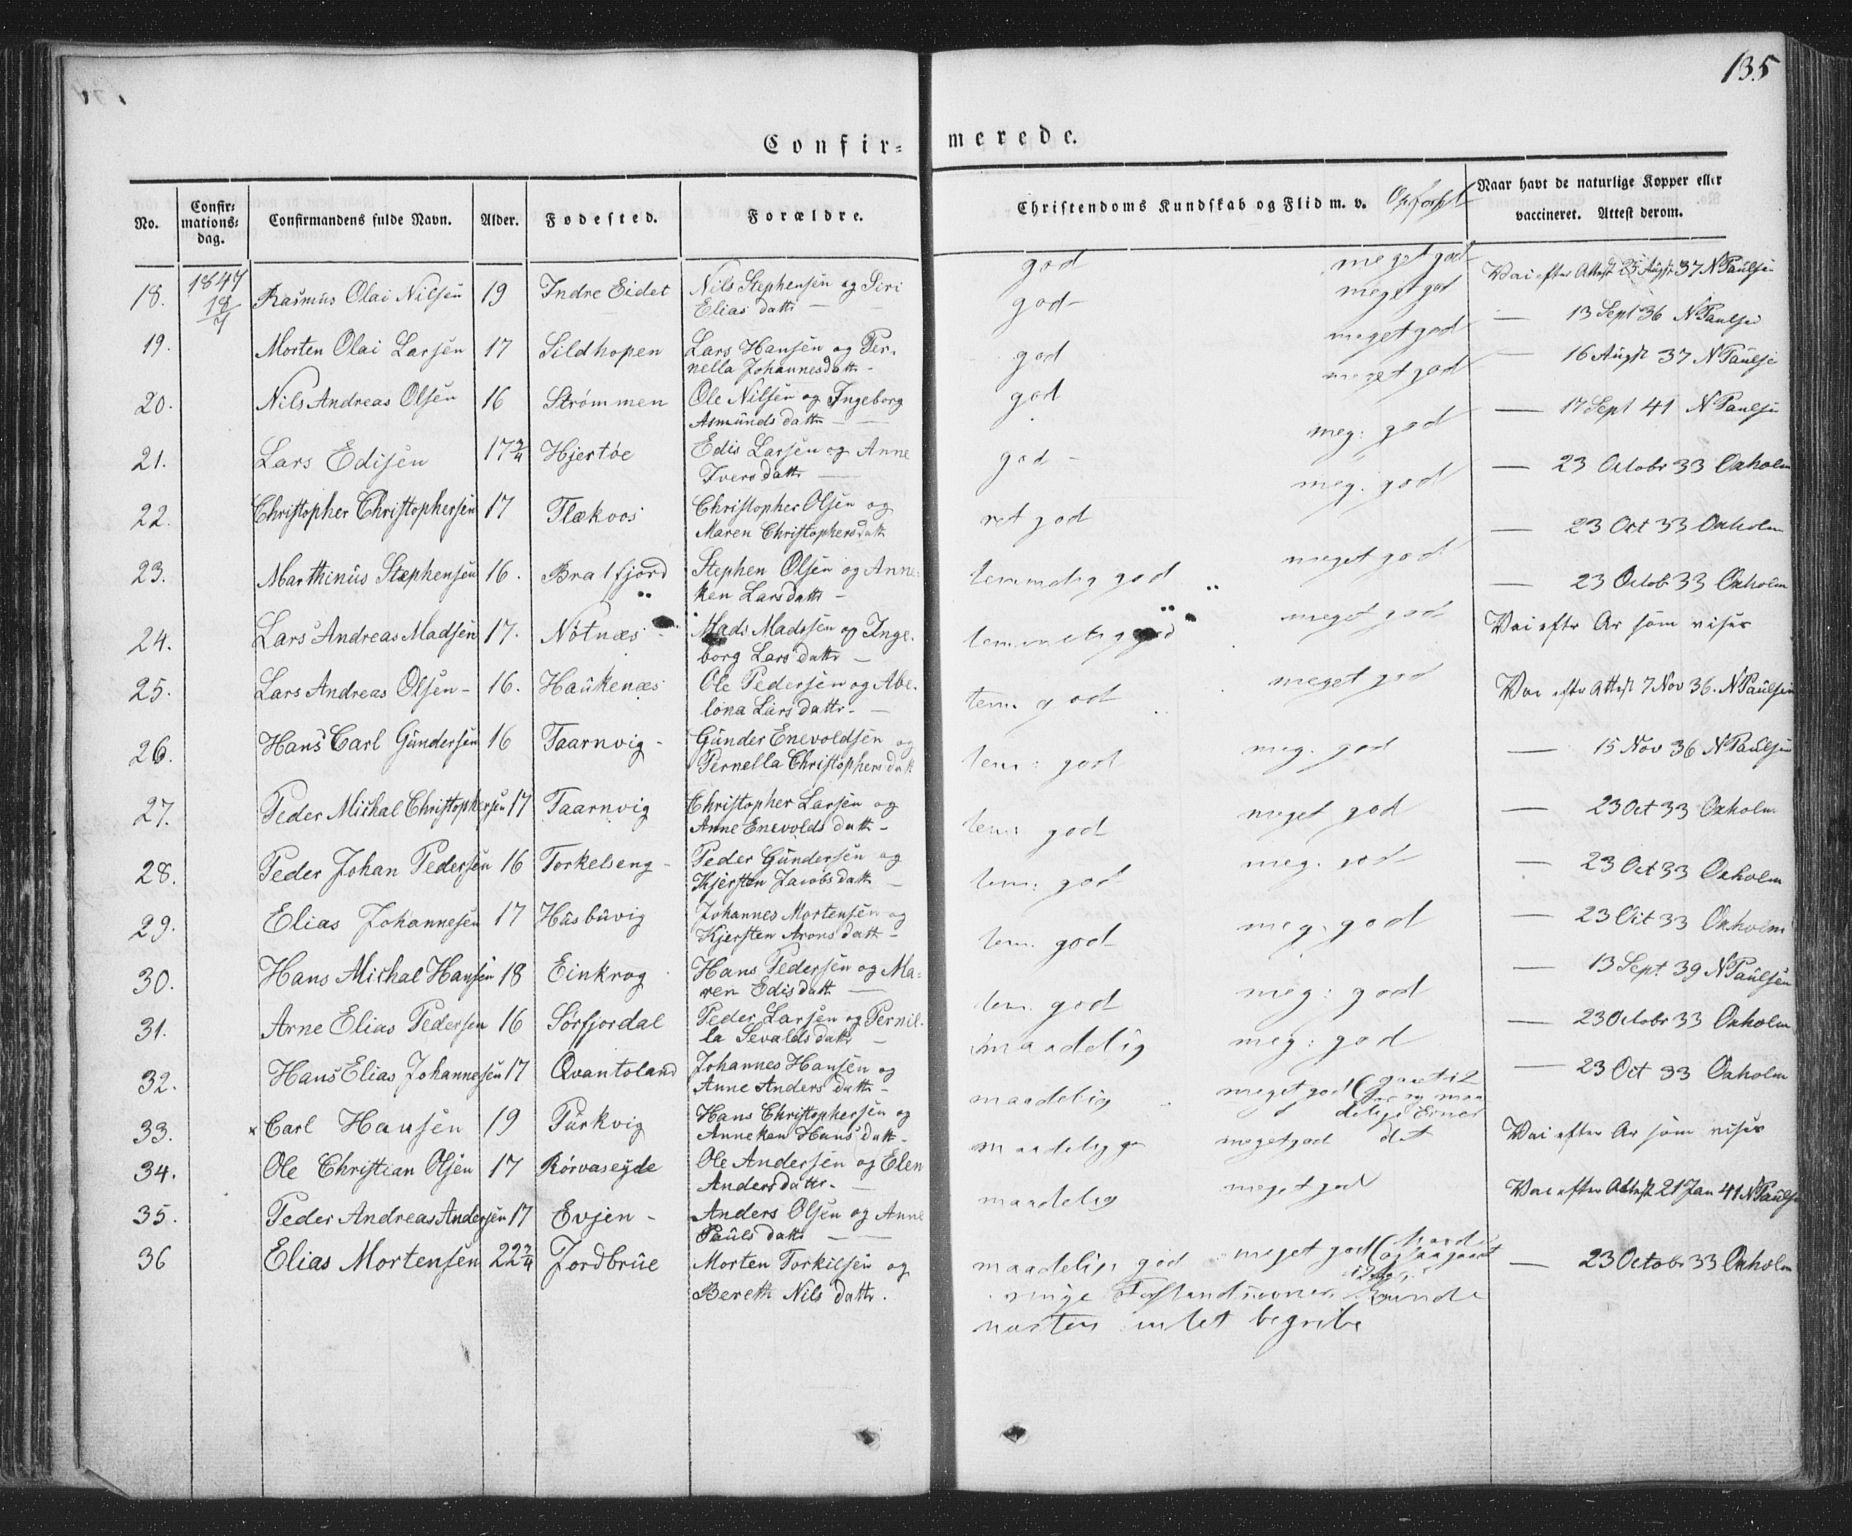 135
Confir= merede.
No.
Confir=
mations=
dag.
Confirmandens fulde Navn.
Alder.
Fodested.
Forældre.
Christendoms Kundskab og Flid m. v.
Opførsel
Naar havt de naturlige Kopper eller
vaccineret. Attest derom.
18. 1847 18/7 Rasmus Olai Nilsen 19 Indre Eidet Nils Stephensen og Siri god meget god Vac efter Attest 25 Augst 37 N Paulsen
Elias datter —
19. Morten Olai Larsen 17 Sildhopen Lars Hansen og Per- god - meget god — 13 Sept 36 N Paulsen
nella Johannesdatter -
20. Nils Andreas Olsen 16 Strømmen Ole Nilsen og Ingeborg god meget god — 16 Augst 37 N Paulsen
Asmunds datter —
21. Lars Edisen 17 3/4 Hjertøe Edis Larsen og Anne god meget god — 17 Sept 41 N Paulsen
Ivers datter —
22. Christopher Christophersen 17 Flækvos Christopher Olsen og god - meg: god — 23 Octobr 33 Oxholm
Maren Christophersdatt
23. Marthinus Stephensen 16. Bratfjord Stephen Olsen og Anne- ret god meg. god — 23 Oct 33 Oxholm
ken Lars datter -
24. Lars Andreas Madsen 17. Nøtnæs Mads Madssen og Inge- temmelig god meget god — 23 Octob 33 Oxholm
borg Lars datter —
25. Lars Andreas Olsen - 16. Haukenæs Ole Pedersen og Abe- temmelig god meget god Vac efter Ar som vises
lona Lars datter. —
26. Hans Carl Gundersen 16 Taarnvig - Gunder Enevoldsen og tem. god meget god Vac efter Attest 7 Nov 36. N Paulsen
Pernella Christophers datt
27. Peder Michal Christophersen 17 Taarnvig Christopher Larsen og tem: god meg. god — 15 Nov 36 N Paulsen
Anne Enevolds datter -
28. Peder Johan Pedersen 16 Torkelseng - Peder Gundersen og tem: god meget god — 23 Oct 33 Oxholm
Kjersten Jacobs datter —
29. Elias Johannesen 17 Husbuvig Johannes Mortensen og tem: god meg. god — 23 Oct 33 Oxholm
Kjersten Arons datter -
30. Hans Michal Hansen 18 Einkrog Hans Pedersen og Ma- tem. god meg. god — 23 Oct 33 Oxholm
ren Edis datter —
31. Arne Elias Pedersen 16 Sørfjordal Peder Larsen og Pernil- tem. god meg: god — 13 Sept. 39 N Paulsen
la Sevalds datter —
32. Hans Elias Johannesen 17 Qvantoland Johannes Hansen og maadelig meg: god — 23 Octobr 33 Oxholm
Anne Anders datter -
33. × Carl Hansen 19 Purkvig Hans Christophersen og maadelig meget god — 23 Oct 33 Oxholm
Anneken Hans datt -
34. Ole Christian Olsen 17 Rørvaseyde Ole Andersen og Elen maadelig meget god Vac efter Ar som vises
Anders datter. —
35. Peder Andreas Andersen 17 Evjen - Anders Olsen og Anne maadelig meget god Vac efter Attest 21 Jan 41 N Paulsen
Pauls datter —
36 Elias Mortensen 22 3/4 Jordbrue Morten Torkilsen og maadelig god meget god — 23 Octobr 33 Oxholm
Bereth Nils datter. ringe Forstandsevner, kunde
næsten intet begribe